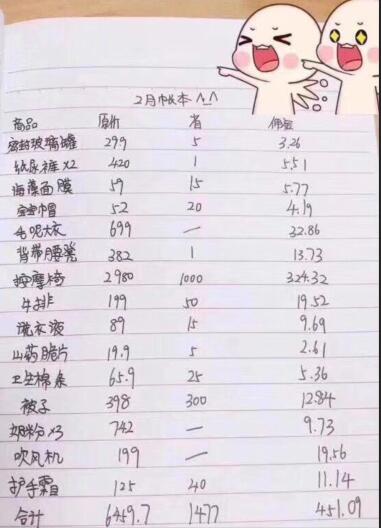 2月帐本 ^_^
商品 原价 省 佣金
密封玻璃罐 299 5 3.26
纸尿裤x2 420 1 5.51
海藻面膜 59 15 5.77
宝宝帽 52 20 4.19
毛呢大衣 699 — 32.86
背带腰凳 382 1 13.73
按摩椅 2980 1000 324.32
牛排 199 50 19.52
洗衣液 89 15 9.69
山药脆片 19.9 5 2.61
卫生棉条 65.9 25 5.36
被子 398 300 12.84
奶粉x3 742 — 9.73
吹风机 199 — 19.56
护手霜 125 40 11.14
合计 6459.7 1477 451.09